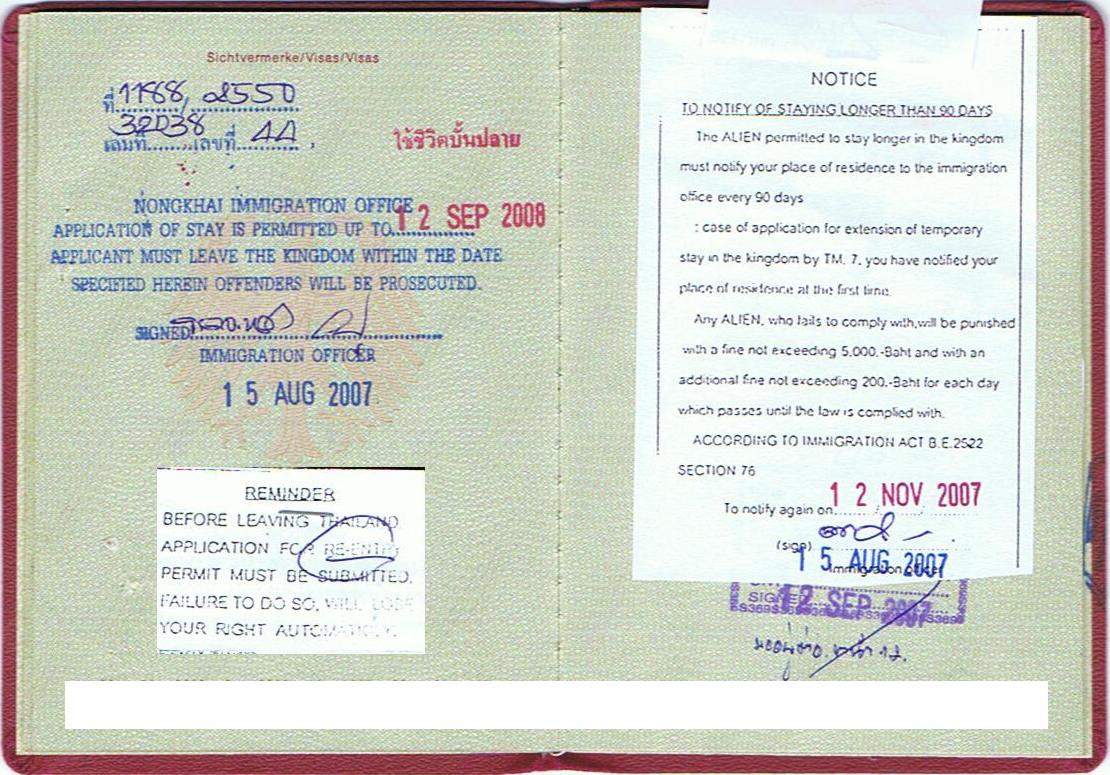 Sichtvermerke/Visas/Visas
ที่ 1188, 2550
32038
เล่มที่........เลขที่ 44
ใช้ชีวิตบั้นปลาย
NONGKHAI IMMIGRATION OFFICE
APPLICATION OF STAY IS PERMITTED UP TO 12 SEP 2008
APPLICANT MUST LEAVE THE KINGDOM WITHIN THE DATE
SPECIFIED HEREIN OFFENDERS WILL BE PROSECUTED.
SIGNED
IMMIGRATION OFFICER
15 AUG 2007
REMINDER
BEFORE LEAVING THAILAND
APPLICATION FOR RE-ENTRY
PERMIT MUST BE SUBMITTED.
FAILURE TO DO SO, WILL LOSE
YOUR RIGHT AUTOMATICLY.
NOTICE
TO NOTIFY OF STAYING LONGER THAN 90 DAYS
The ALIEN permitted to stay longer in the kingdom
must notify your place of residence to the immigration
office every 90 days
: case of application for extension of temporary
stay in the kingdom by TM. 7. you have notified your
place of residence at the first time.
Any ALIEN, who fails to comply with,will be punished
with a fine not exceeding 5,000.-Baht and with an
additional fine not exceeding 200.-Baht for each day
which passes until the law is complied with.
ACCORDING TO IMMIGRATION ACT B.E.2522
SECTION 76
To notify again on 12 NOV 2007
(sign)
15 AUG 2007
Immigration
SIGNED
12 SEP 2007